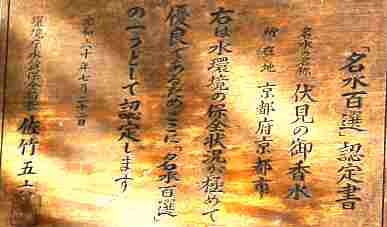 「名水百選」認定書
名水の名称 伏見の御香水
所在地 京都府京都市
右は水環境の保全状況が極めて
優良であるためここに「名水百選」
の一つとして認定します
昭和六十年七月二十二日
環境庁水質保全局長 佐竹五六